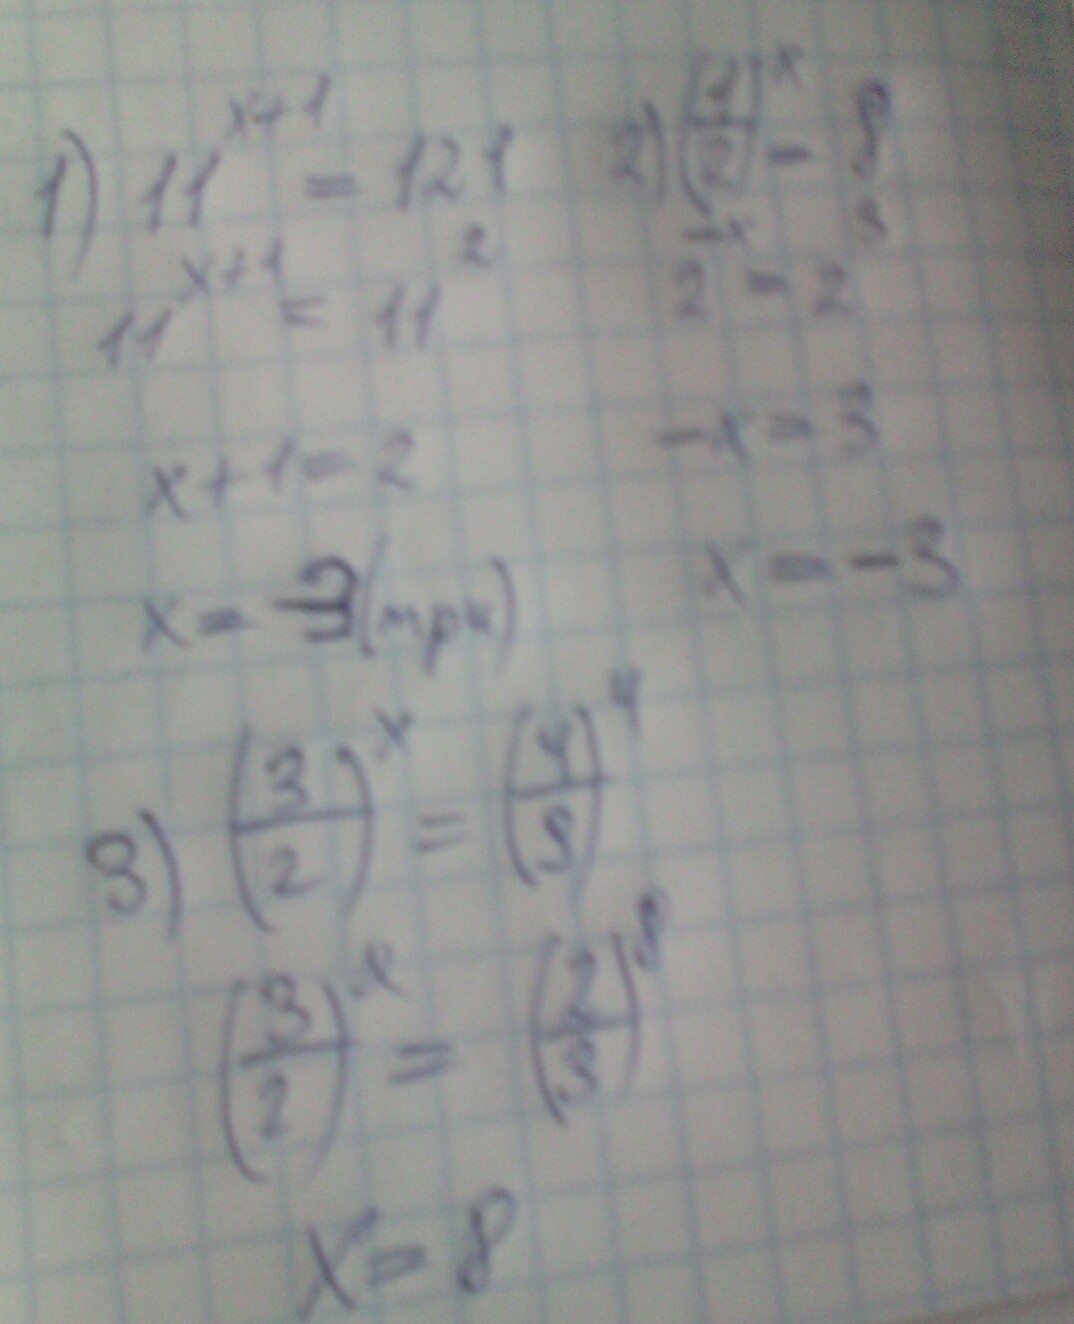 1) 11^(x+1) = 121
11^(x+1) = 11^2
x+1=2
x=3(три)
2) (1/2)^x = 8
2^(-x) = 2^3
-x=3
x=-3
3) (3/2)^x = (4/9)^4
(3/2)^x = (2/3)^8
x=8